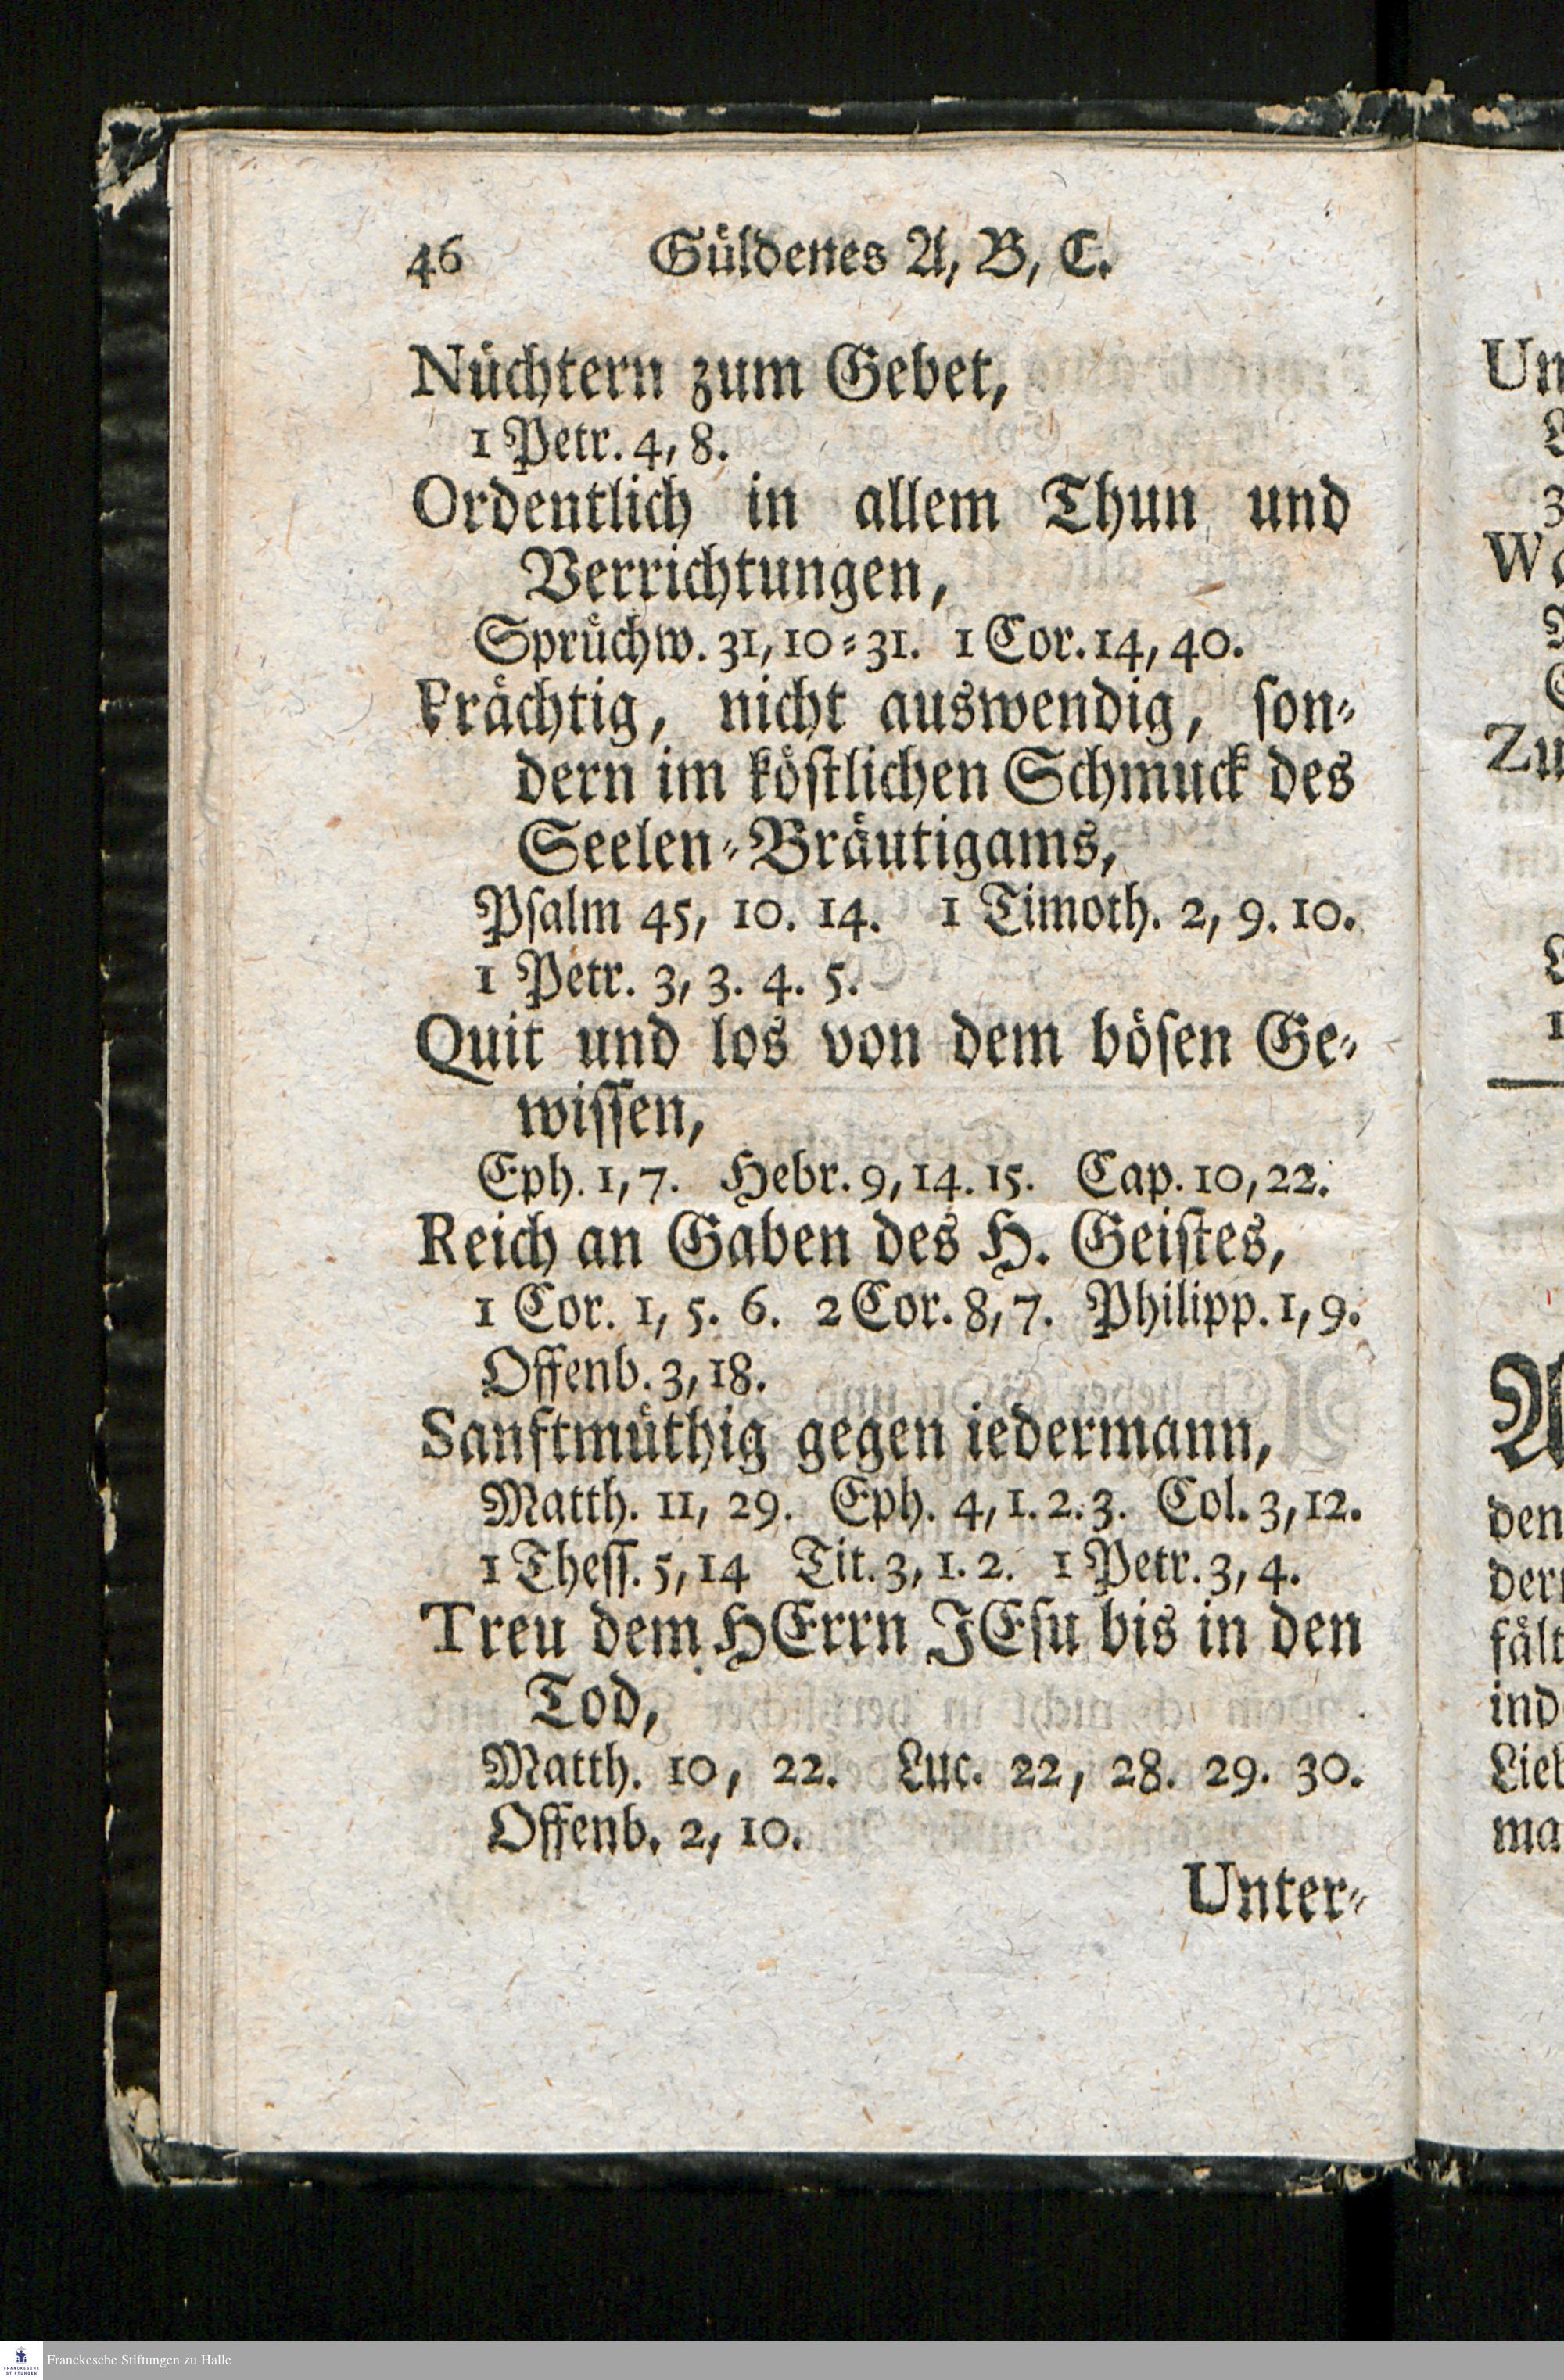 46 Güldenes A, B, C.
Nüchtern zum Gebet,
1 Petr. 4, 8.
Ordentlich in allem Thun und
Verrichtungen,
Sprüchw. 31, 10-31. 1 Cor. 14, 40.
Prächtig, nicht auswendig, son-
dern im köstlichen Schmuck des
Seelen-Bräutigams,
Psalm 45, 10. 14. 1 Timoth. 2, 9. 10.
1 Petr. 3, 3. 4. 5.
Quit und los von dem bösen Ge-
wissen,
Eph. 1, 7. Hebr. 9, 14. 15. Cap. 10, 22.
Reich an Gaben des H. Geistes,
1 Cor. 1, 5. 6. 2 Cor. 8, 7. Philipp. 1, 9.
Offenb. 3, 18.
Sanftmüthig gegen iedermann,
Matth. 11, 29. Eph. 4, 1. 2. 3. Col. 3, 12.
1 Thess. 5, 14 Tit. 3, 1. 2. 1 Petr. 3, 4.
Treu dem HErrn JEsu bis in den
Tod,
Matth. 10, 22. Luc. 22, 28. 29. 30.
Offenb. 2, 10.
Unter-
Franckesche Stiftungen zu Halle